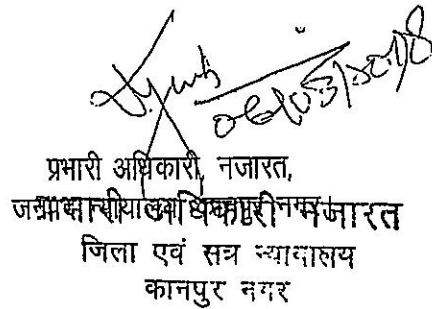 06/03/2018
प्रभारी अधिकारी, नजारत,
प्रभारी अधिकारी नजारत
जिला एवं सत्र न्यायालय
कानपुर नगर